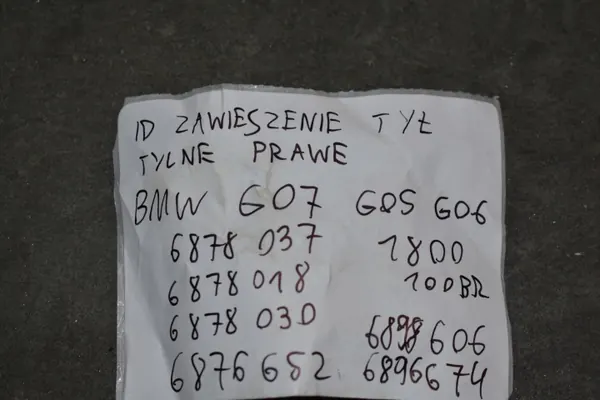 ID ZAWIESZENIE TYŁ
TYLNE PRAWE
BMW G07 G05 G06
6878 037 1800
6878 018 100BR
6878 030
6898 606
6876 652 6896674